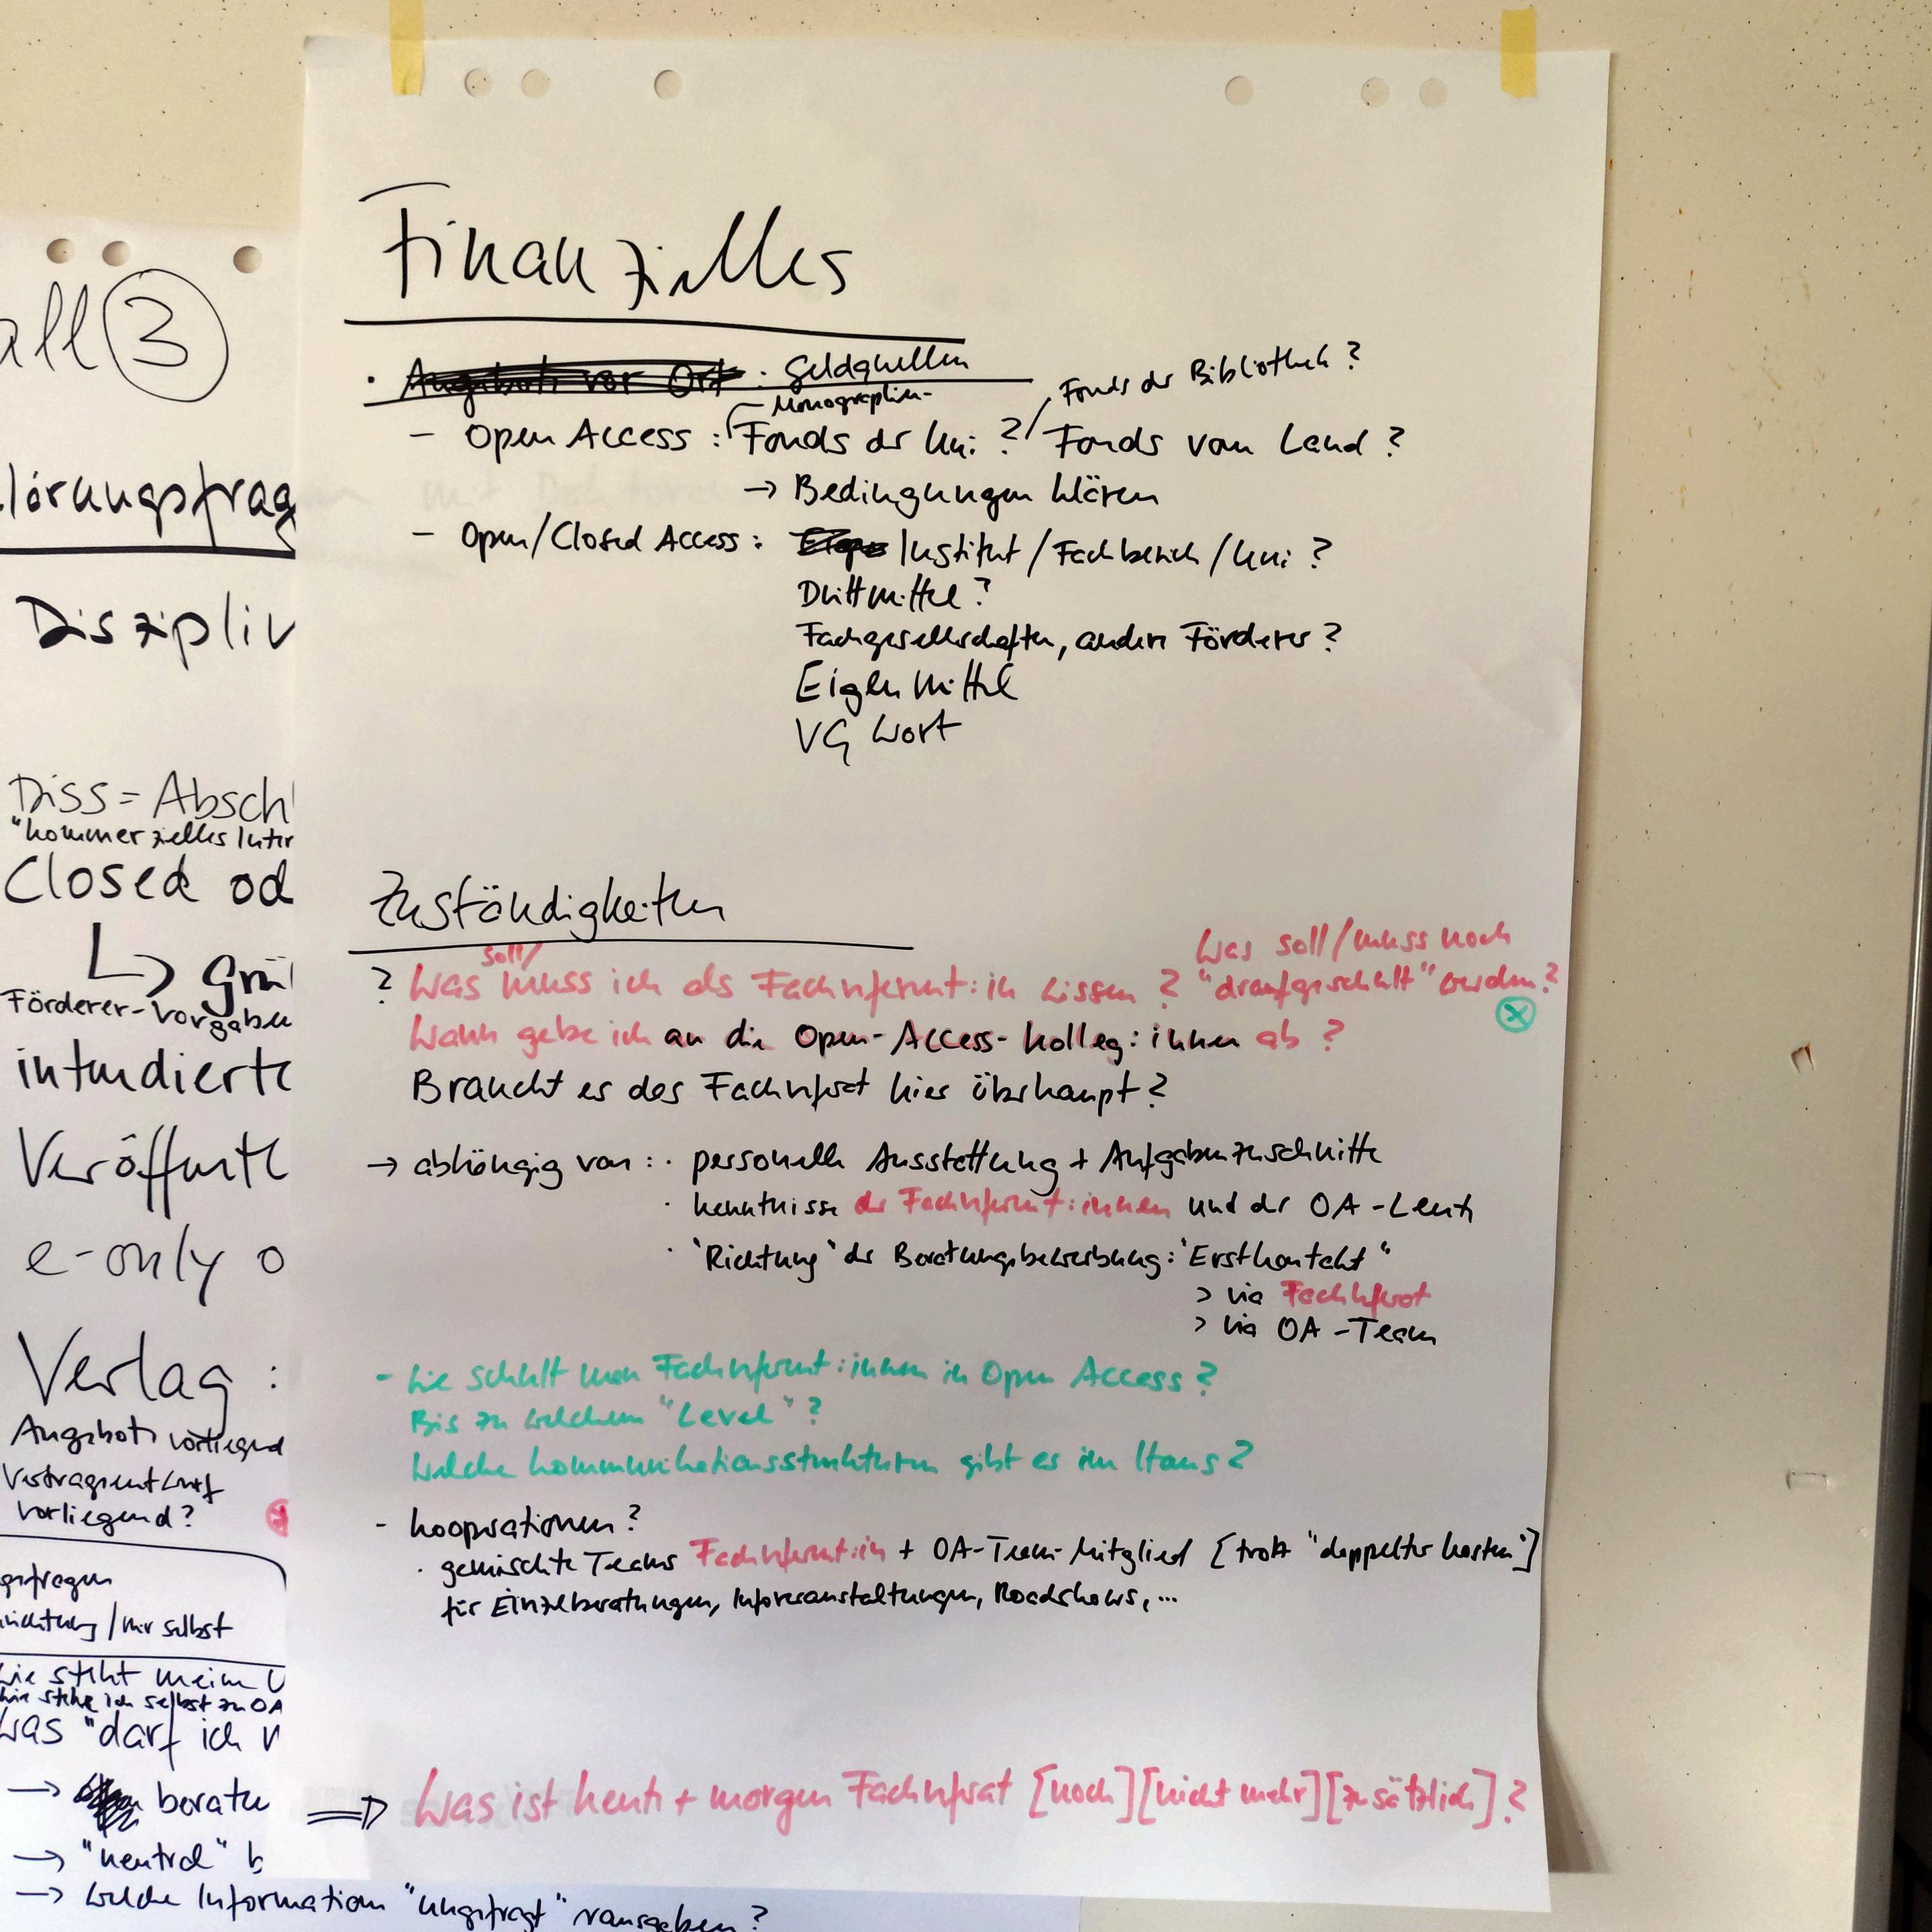 all ③
lärungsfrag
Disziplin
Diss = Absch
"kommerzielles Inter
Closed od
↳ grü
Förderer-Vorgaben
intendierte
Veröffentl
e-only o
Verlag :
Angebot vorliegend
Vertragsentwurf
vorliegend?
gsfragen
richtung / mir selbst
Wie steht meine U
Wie stehe ich selbst zu OA
Was "darf ich
→ beraten
→ "neutral" b
→ welche Information "ungefragt" rausgeben?
Finanzielles
· Angebote vor Ort : Geldquellen
Monographien-
Fonds der Bibliothek?
- Open Access : Fonds der Uni ? / Fonds vom Land ?
→ Bedingungen klären
- Open/Closed Access : Institut / Fachbereich / Uni ?
Drittmittel?
Fachgesellschaften, andere Förderer ?
Eigenmittel
VG Wort
Zuständigkeiten
soll/
? Was muss ich als Fachreferent:in wissen ?
Was soll/muss noch
"draufgeschult" werden?
Wann gebe ich an die Open-Access-Kolleg:innen ab ?
Braucht es das Fachreferat hier überhaupt?
→ abhängig von : · personelle Ausstattung + Aufgabenzuschnitte
· Kenntnisse der Fachreferent:innen und der OA-Leute
· 'Richtung' der Beratungsbewerbung: "Erstkontakt"
> via Fachreferat
> via OA-Team
- Wie schult man Fachreferent:innen in Open Access?
Bis zu welchem "Level" ?
Welche Kommunikationsstrukturen gibt es im Haus?
- Kooperationen?
· gemischte Teams Fachreferent:in + OA-Team-Mitglied [trotz "doppelter Kosten"]
für Einzelberatungen, Infoveranstaltungen, Roadshows, ...
⇒ Was ist heute + morgen Fachreferat [noch] [nicht mehr] [zusätzlich] ?